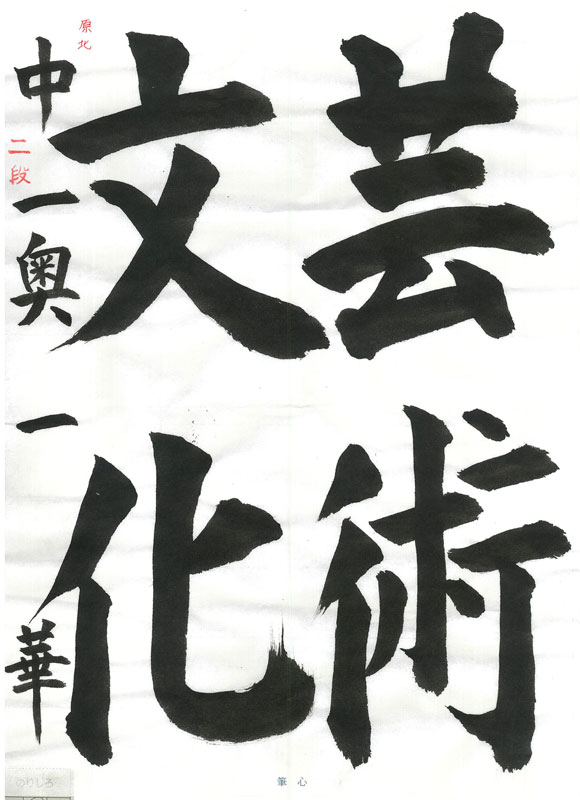 芸術
文化
中一奥一華
原北
二段
筆心
のりしろ